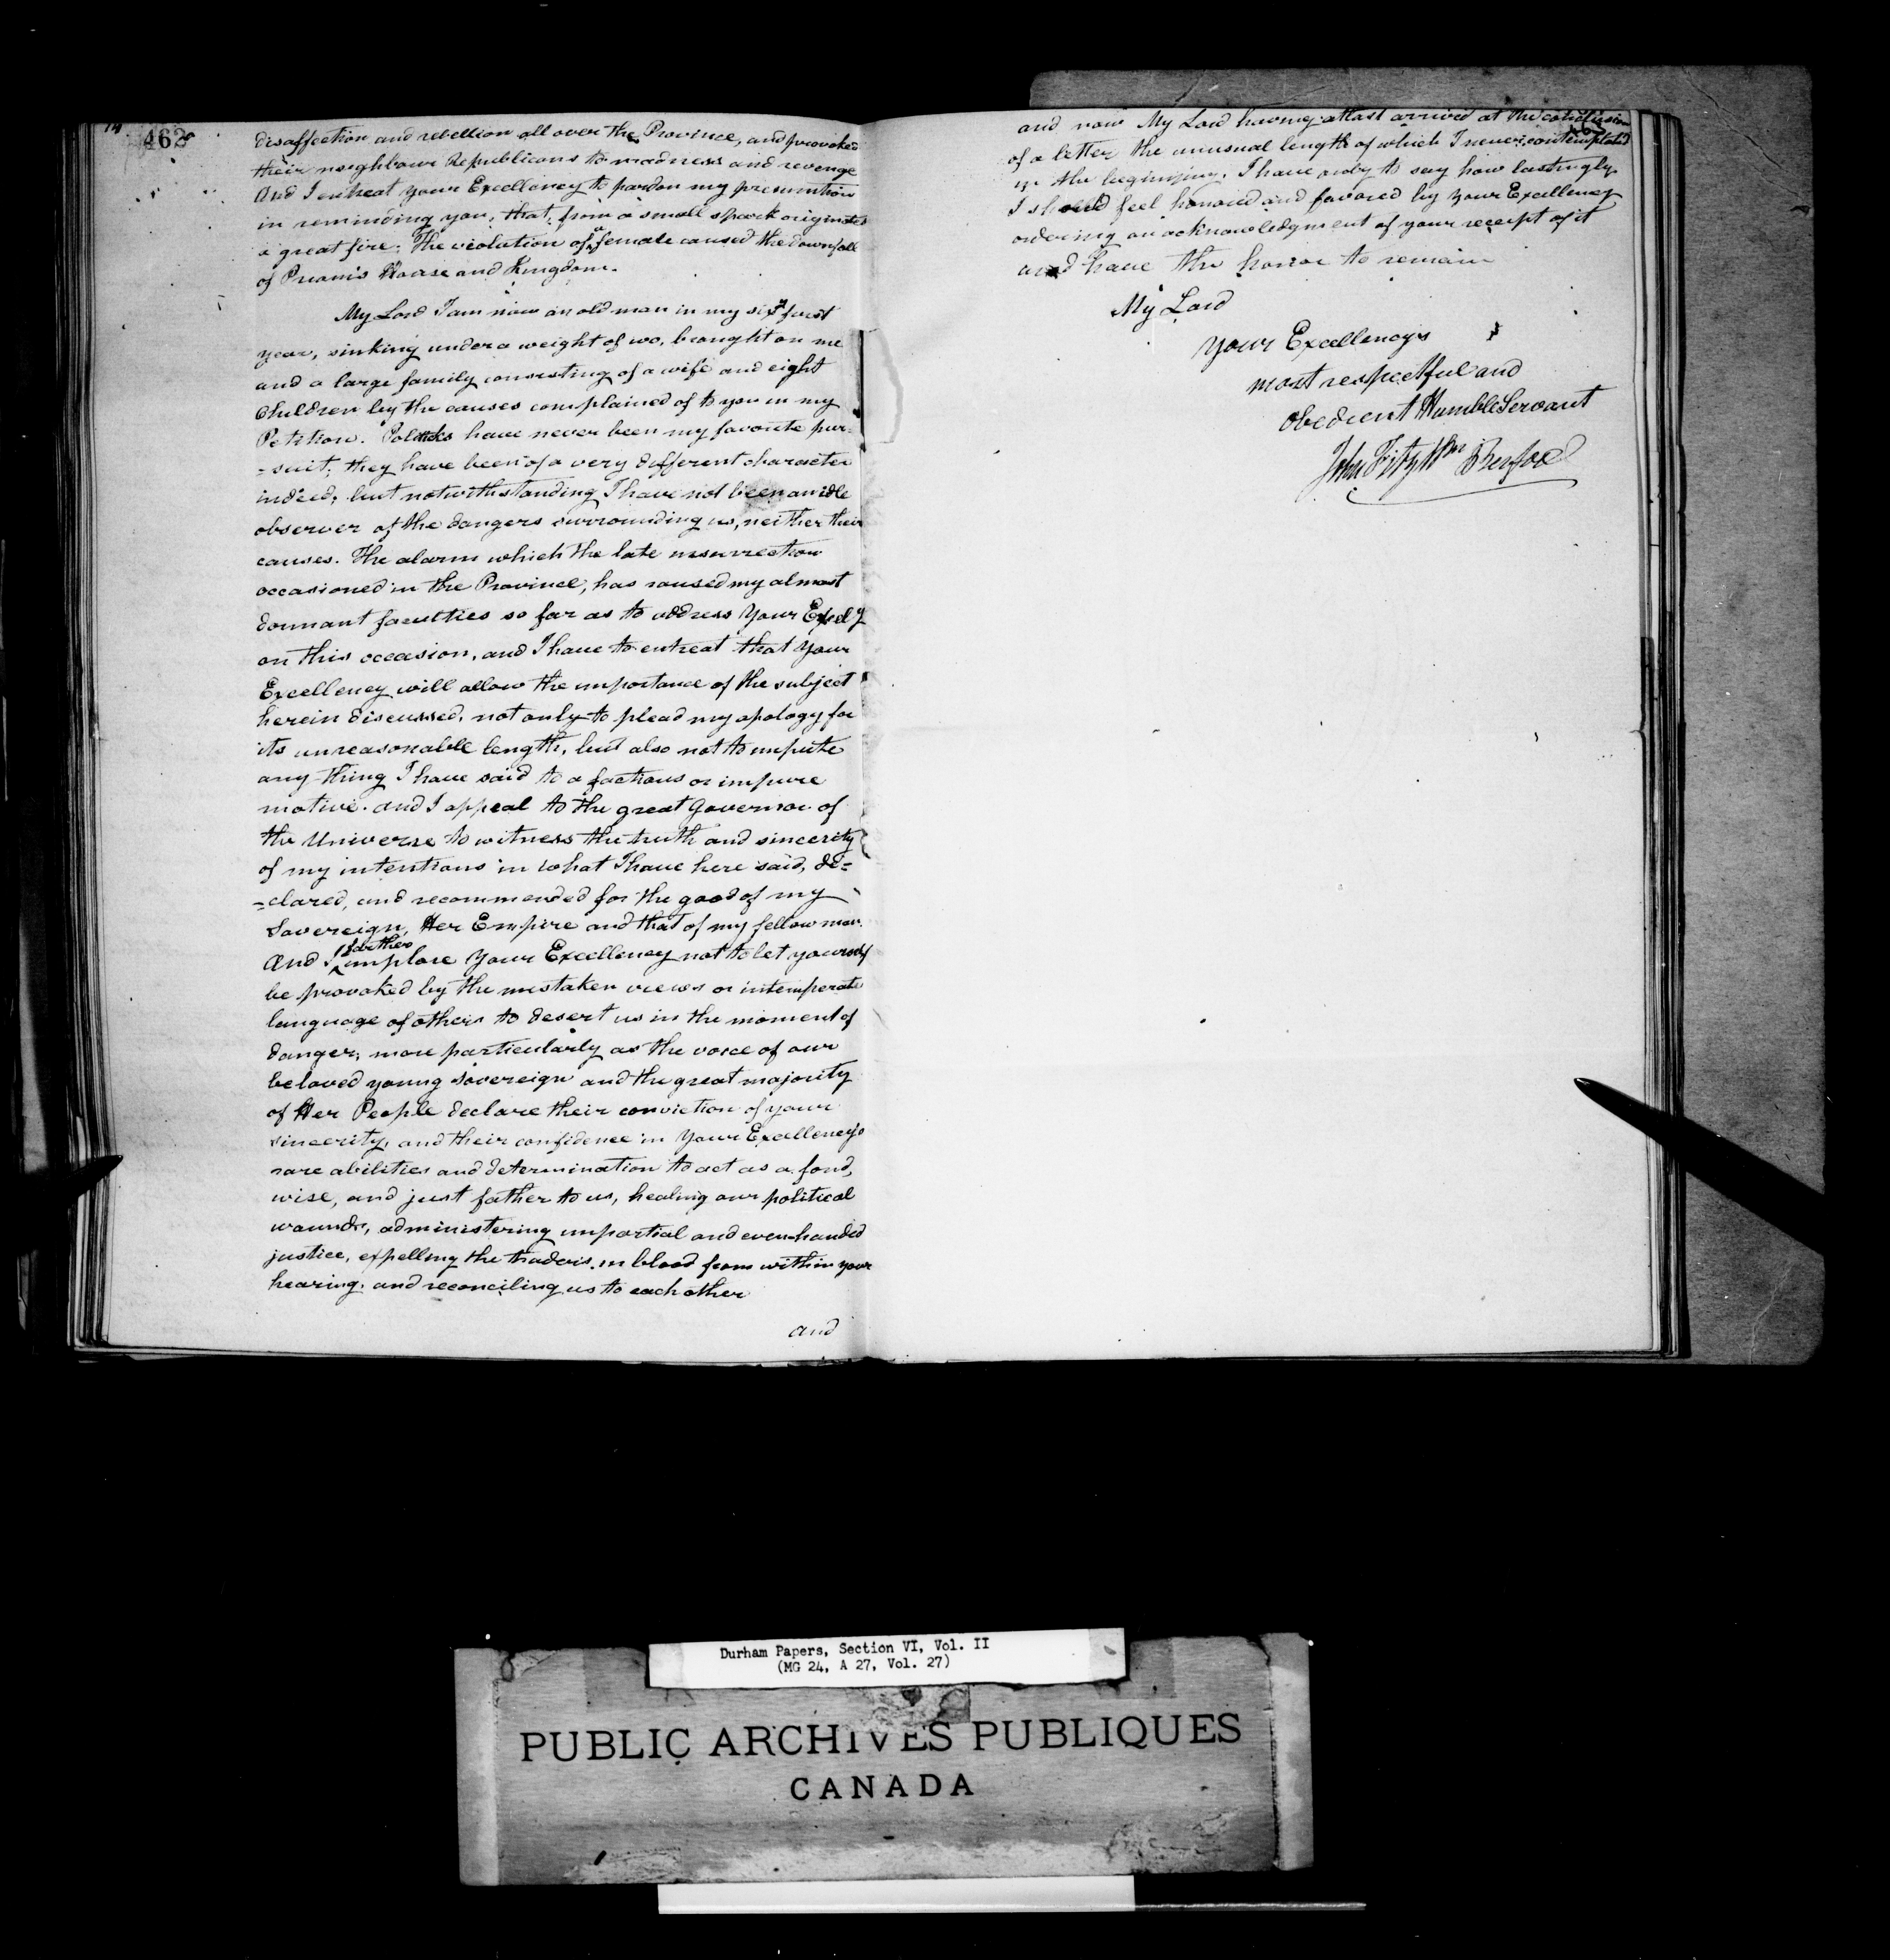 14
462
disaffection and rebellion all over the Province, and provoked
their neighbour Republicans to madness and revenge
And I entreat your Excellency to pardon my presumtion
in reminding you, that, from a small spark originates
a great fire. The violation of a female caused the downfall
of Priam's House and Kingdom.
My Lord I am now an old man in my sixty first
year, sinking under a weight of wo, brought on me
and a large family consisting of a wife and eight
Children by the causes complained of to you in my
Petition. Politicks have never been my favorite pur=
=suit; they have been of a very different character
indeed; but notwithstanding I have not been an idle
observer of the dangers surrounding us, neither their
causes. The alarm which the late insurrection
occasioned in the Province, has roused my almost
dormant faculties so far as to address Your Excely
on this occasion, and I have to entreat that Your
Excellency will allow the importance of the subject
herein discussed, not only to plead my apology for
its unreasonable length, but also not to impute
any-thing I have said to a factious or impure
motive. and I appeal to the great Governor of
the Universe to witness the truth and sincerity
of my intentions in what I have here said, de=
=clared, and recommended for the good of my
Sovereign, Her Empire and that of my fellow man.
And I farther implore Your Excellency not to let yourself
be provoked by the mistaken views or intemperate
language of others to desert us in the moment of
danger; more particularly as the voice of our
beloved young Sovereign and the great majority
of Her People declare their conviction of your
sincerity, and their confidence in Your Excellency's
rare abilities and determination to act as a fond,
wise, and just father to us, healing our political
wounds, administering impartial and even-handed
justice, expelling the traders in blood from within your
hearing, and reconciling us to each other
and
and now My Lord having at last arrived at the conclusion
of a letter the unusual length of which I never contemplated
in the beginning. I have only to say how lastingly
I should feel honored and favored by Your Excellency
ordering an acknowledgment of your receipt of it
and have the honor to remain
My Lord
Your Excellency's
most respectful and
obedient Humble Servant
John Fitz Wm
Durham Papers, Section VI, Vol. II
(MG 24, A 27, Vol. 27)
PUBLIC ARCHIVES PUBLIQUES
CANADA